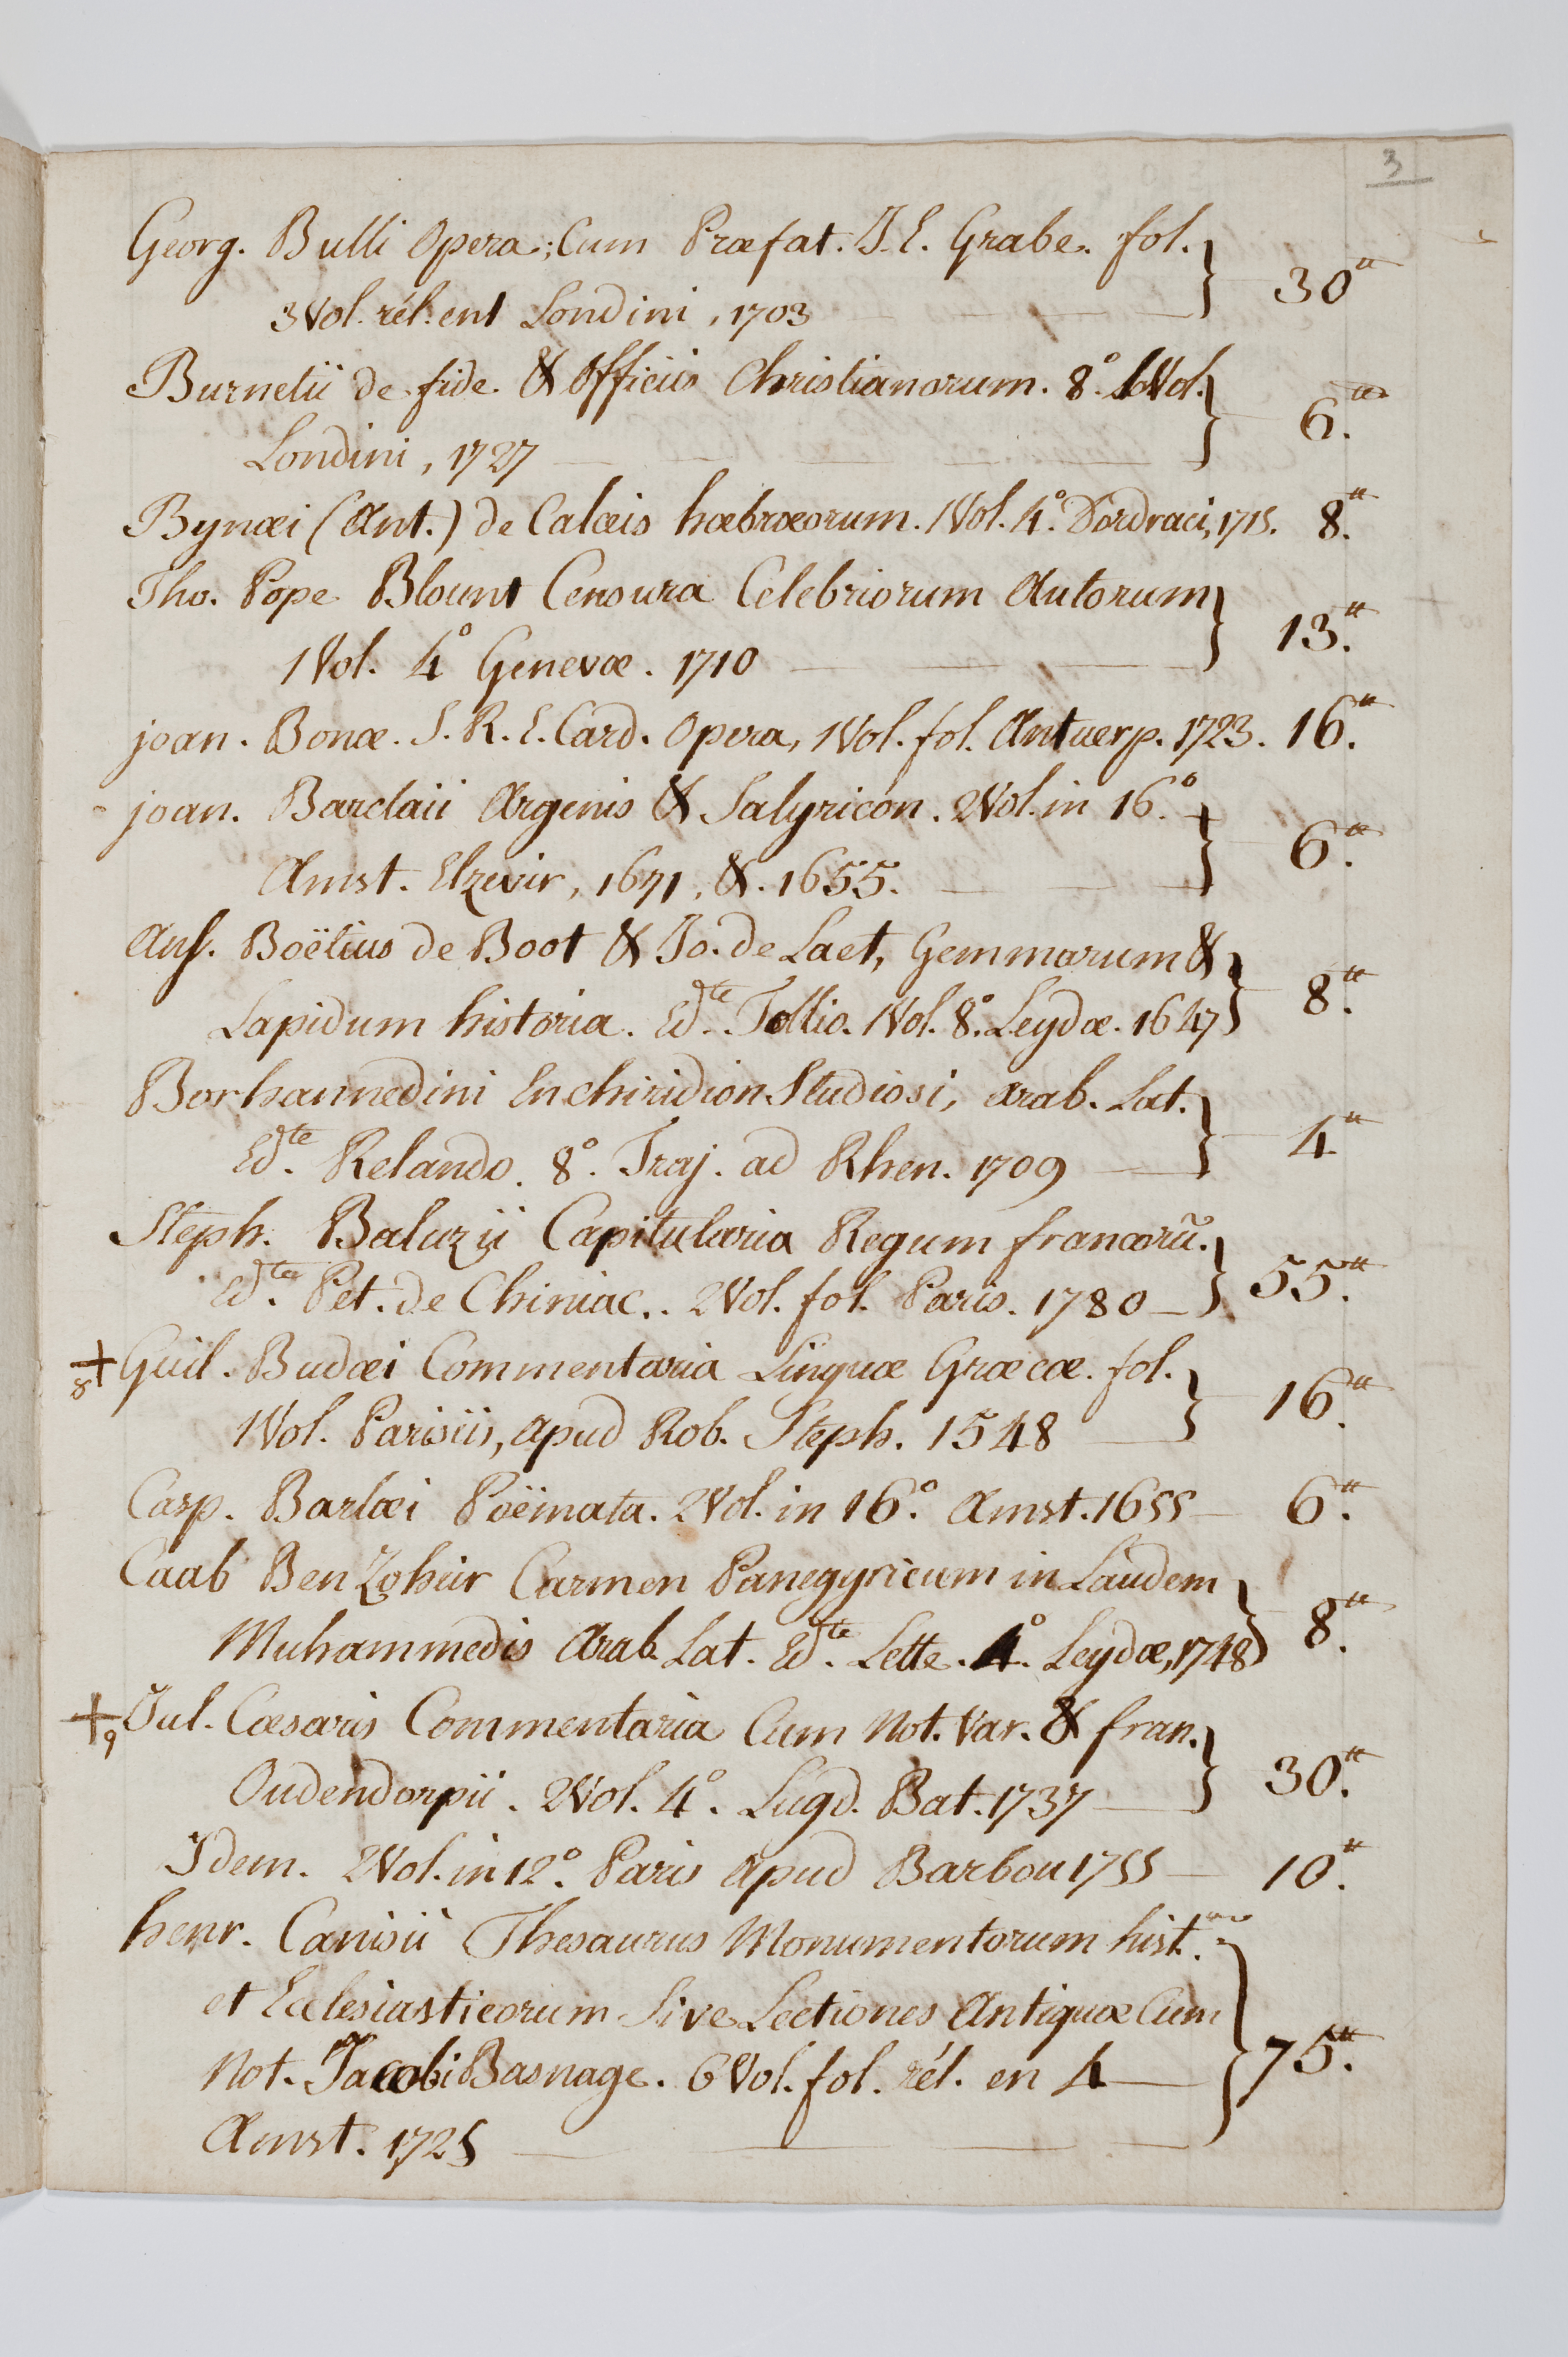 3
Georg. Bulli Opera; Cum Præfat. J. E. Grabe. fol.
3 Vol. rél. en 1 Londini, 1703 30ᵗᵗ
Burnetii de fide & Officiis Christianorum. 8° 1 Vol.
Londini, 1727 6.ᵗᵗ
Bynæi (Ant.) de Calceis hæbræorum. 1 Vol. 4° Dordraci, 1715. 8.ᵗᵗ
Tho. Pope Blount Censura Celebriorum Autorum
1 Vol. 4° Genevæ. 1710 13.ᵗᵗ
joan. Bonæ. S. R. E. Card. Opera, 1 Vol. fol. Antuerp. 1723. 16.ᵗᵗ
joan. Barclaii Argenis & Satyricon. 2 Vol. in 16°.
Amst. Elzevir, 1671, &. 1655. 6.ᵗᵗ
Ans. Boëtius de Boot & Jo. de Laet, Gemmarum &
Lapidum historia. Edᵗᵉ. Tollio. 1 Vol. 8° Leydæ. 1647 8.ᵗᵗ
Borhaneddini Enchiridion Studiosi, arab. Lat.
Edᵗᵉ. Relando. 8°. Traj. ad Rhen. 1709 4ᵗᵗ
Steph. Baluzii Capitularia Regum francorũ.
Edᵗᵉ. Pet. de Chiniac.. 2 Vol. fol. Paris. 1780 55.ᵗᵗ
+ 8 Guil. Budæi Commentaria Linguæ Græcæ. fol.
1 Vol. Parisiis, apud Rob. Steph. 1548 16.ᵗᵗ
Casp. Barlæi Poëmata. 2 Vol. in 16°. Amst. 1655 6.ᵗᵗ
Caab Ben Zoheir Carmen Panegyricum in Laudem
Muhammedis Arab. Lat. Edᵗᵉ. Lette. 4°. Leydæ, 1748 8.ᵗᵗ
+ 9 Jul. Cæsaris Commentaria Cum Not. Var. & fran.
Oudendorpii. 2 Vol. 4°. Lugd. Bat. 1737 30.ᵗᵗ
Idem. 2 Vol. in 12°. Paris apud Barbou 1755 10.ᵗᵗ
henr. Canisii Thesaurus Monumentorum hist.
et Ecclesiasticorum Sive Lectiones Antiquæ Cum
Not. Jacobi Basnage. 6 Vol. fol. rél. en 4 75.ᵗᵗ
Amst. 1725